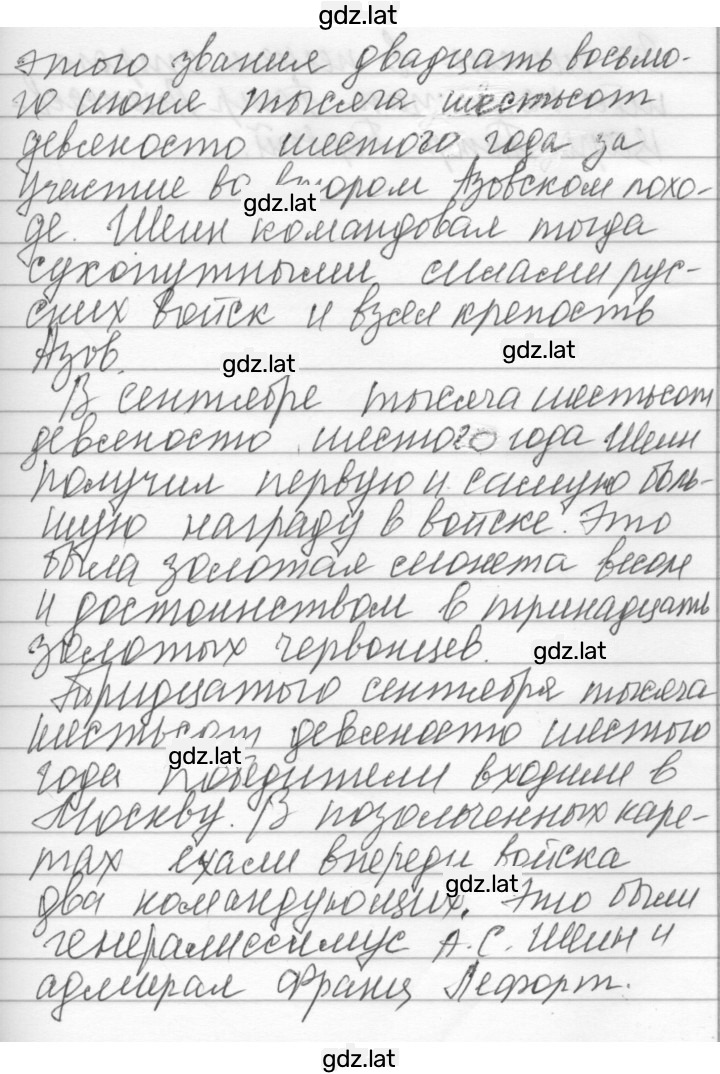 gdz.lat
этого звания двадцать восьмо-
го июня тысяча шестьсот
девяносто шестого года за
участие во втором Азовском похо-
gdz.lat
де. Шеин командовал тогда
сухопутными силами рус-
ских войск и взял крепость
Азов.
gdz.lat
gdz.lat
В сентябре тысяча шестьсот
девяносто шестого года Шеин
получил первую и самую боль-
шую награду в войске. Это
была золотая монета весом
и достоинством в тринадцать
золотых червонцев.
gdz.lat
Тридцатого сентября тысяча
шестьсот девяносто шестого
gdz.lat
года победители входили в
Москву. В позолоченных каре-
тах ехали впереди войска
gdz.lat
два командующих. Это были
генералиссимус А.С. Шеин и
адмирал Франц Лефорт.
gdz.lat